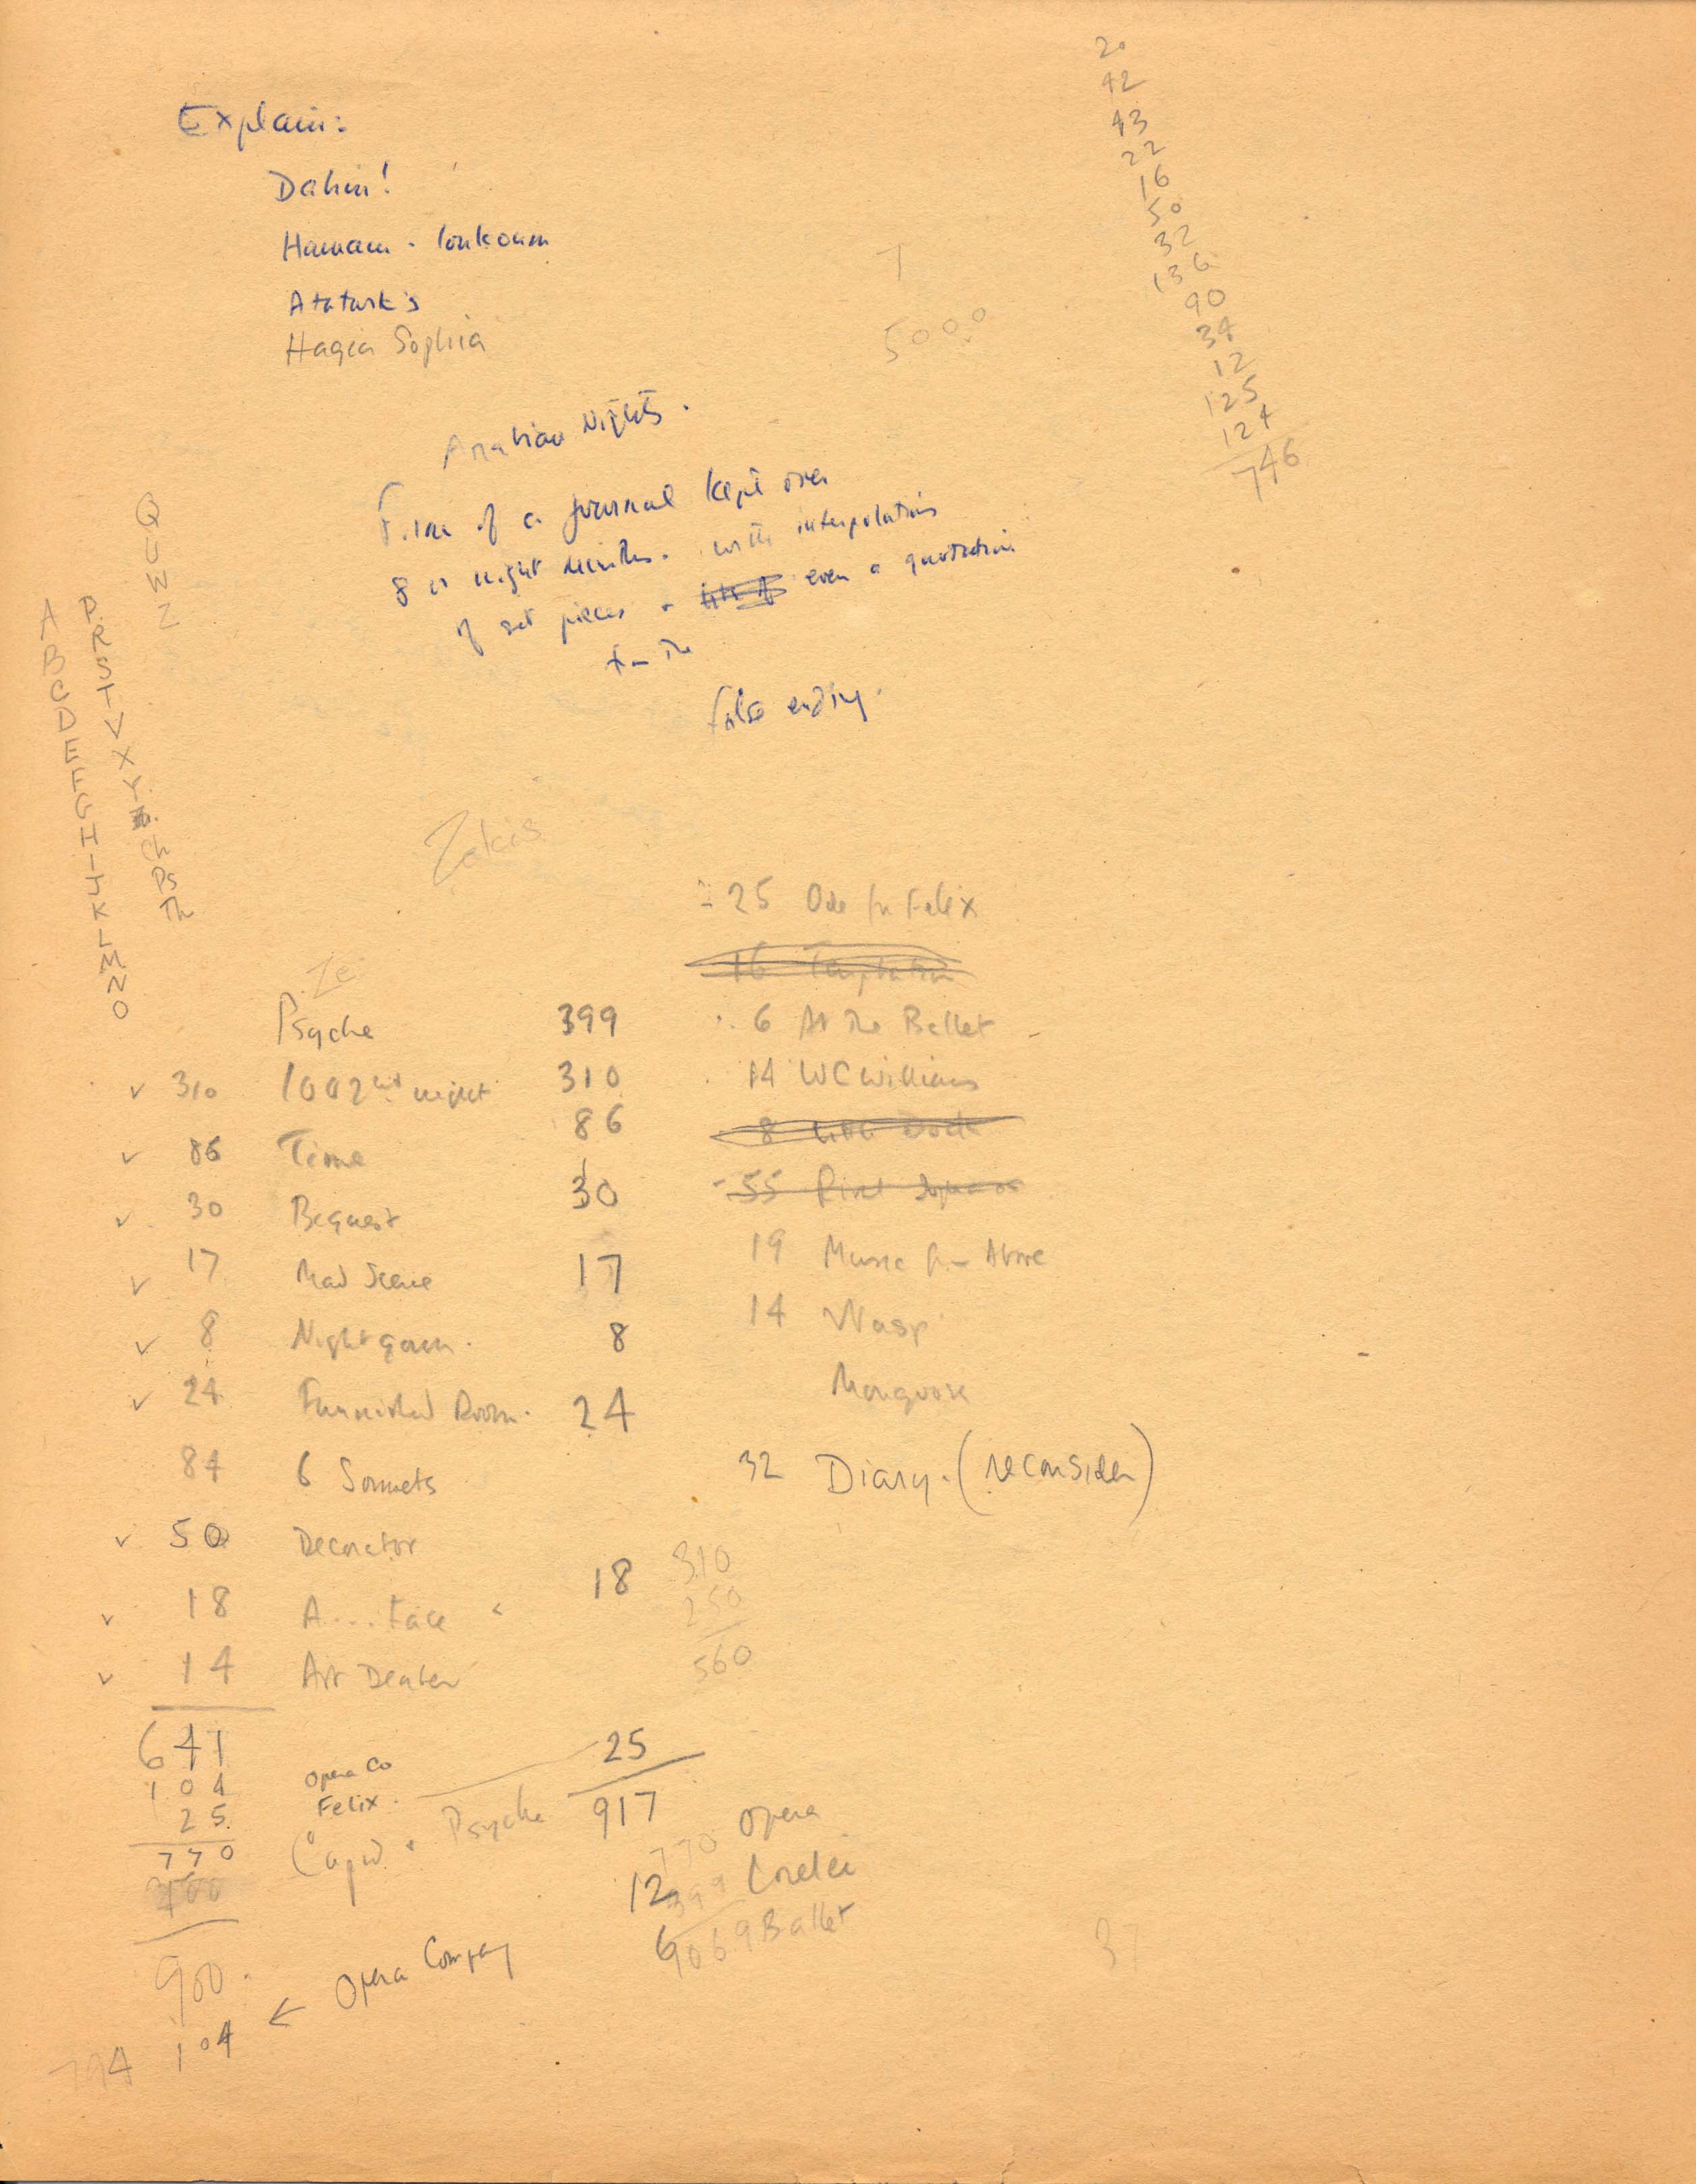 Explain:
Dahin!
Hamam - loukoum
Ataturk's
Hagia Sophia
Arabian Nights.
Form of a journal kept over
8 or eight months. with interpolations
of set pieces + even a quotation
from the
False ending.
7
5000
20
42
43
22
16
50
32
136
90
34
12
125
124
746
Q
U
W
Z
P
R
S
T
V
X
Y
Ch
Ps
Th
A
B
C
D
E
F
G
H
I
J
K
L
M
N
O
Ze
Psyche 399
✓ 310 1002nd night 310
✓ 86 Time 86
✓ 30 Bequest 30
✓ 17 Mad Scene 17
✓ 8 Nightgown. 8
✓ 24 Furnished Room. 24
84 6 Sonnets
✓ 50 Decorator
✓ 18 A....Face 18
✓ 14 Art Dealer
641
104 Opera Co
25 Felix. 25
770 Cupid + Psyche 917
900.
104 ← Opera Company
794
25 Ode for Felix
16 Temptation
6 At the Ballet
14 WC Williams
8
55
19 Music from Above
14 Wasp
Mongoose
32 Diary. (reconsider)
310
250
560
770
399
Opera
12 Lorelei
6 Ballet
37